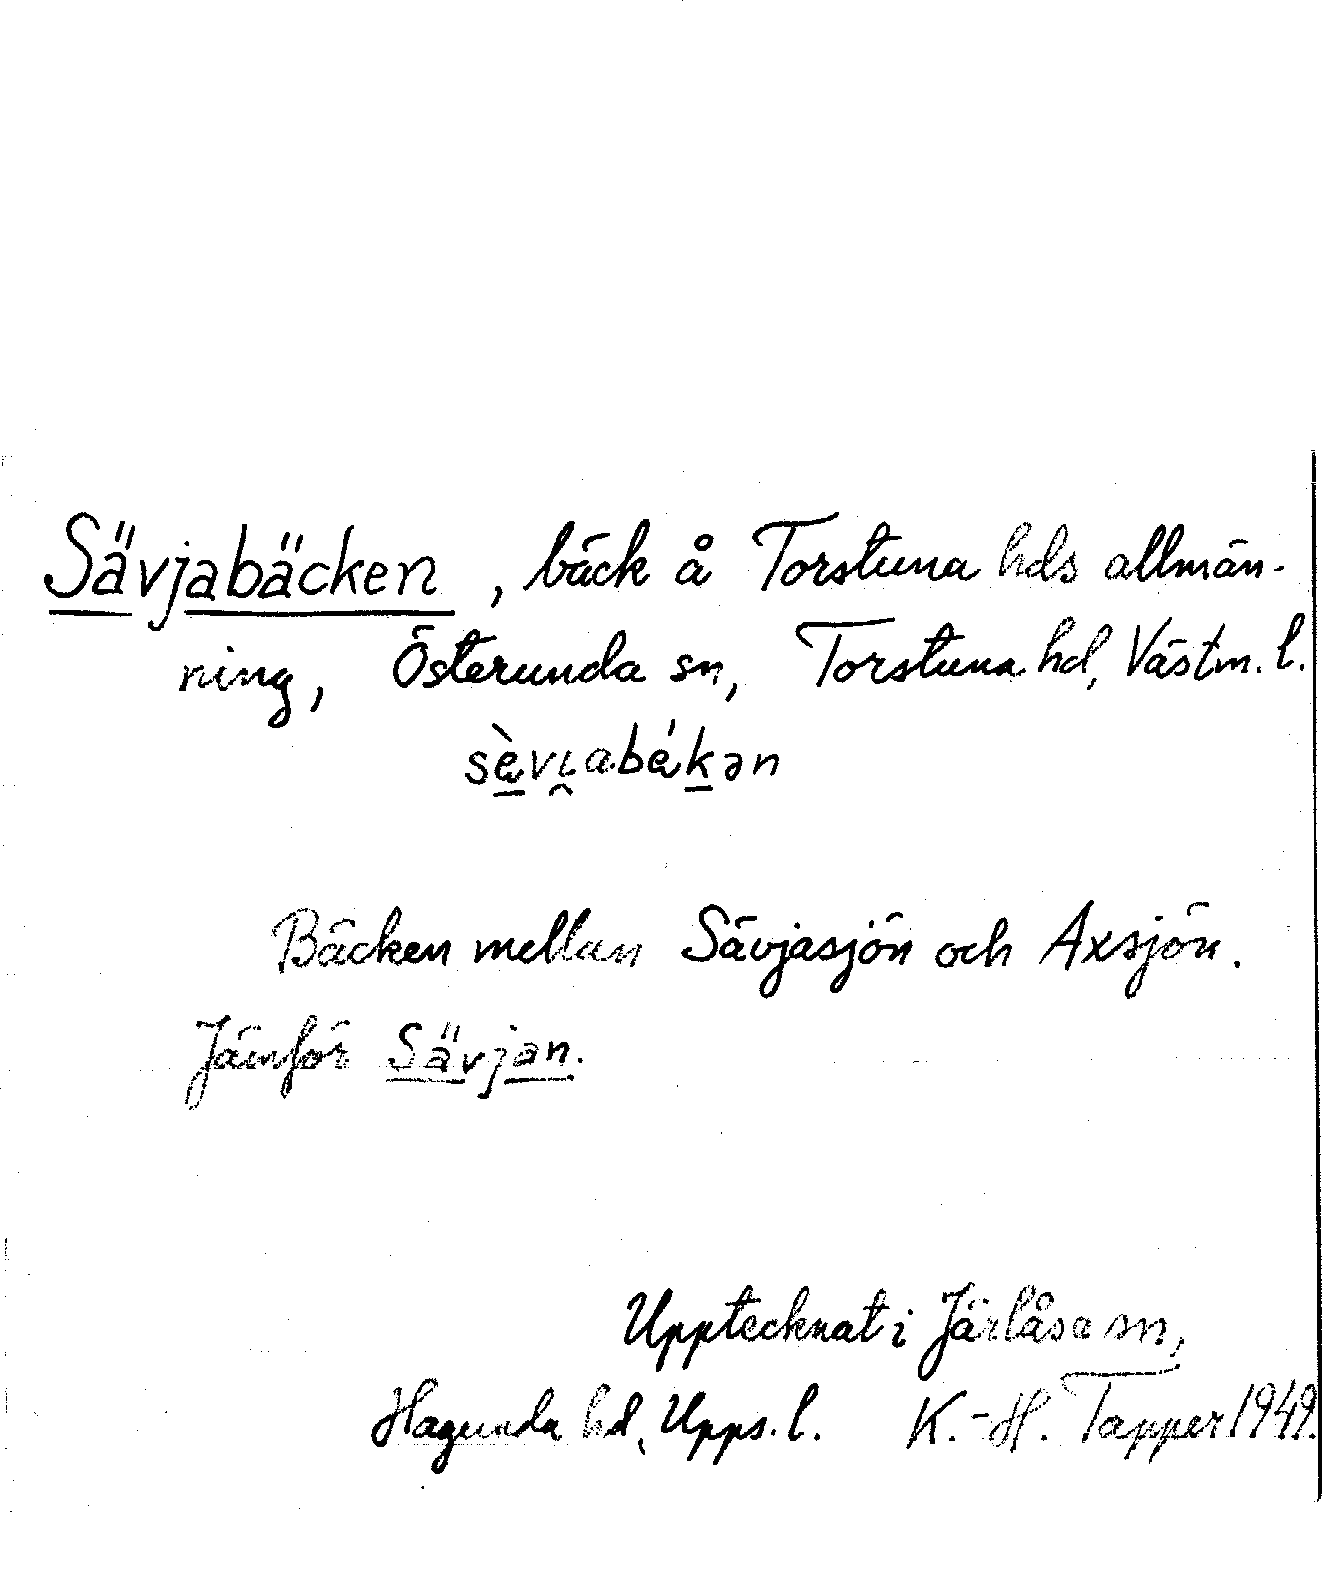 Sävjabäcken, bäck å Torstuna hds allmän-
ning, Österunda sn, Torstuna hd, Västm. l.
sὲvi̯abέkən
Bäcken mellan Sävjasjön och Axsjön.
Jämför Sävjan.
Upptecknat i Järlåsa sn,
Hagunda hd, Upps. l. K.-H. Tapper 1949.